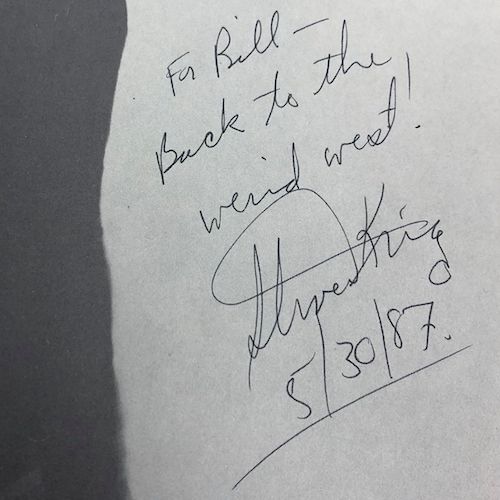 For Bill –
Back to the
weird west!
Stephen King
5/30/87.